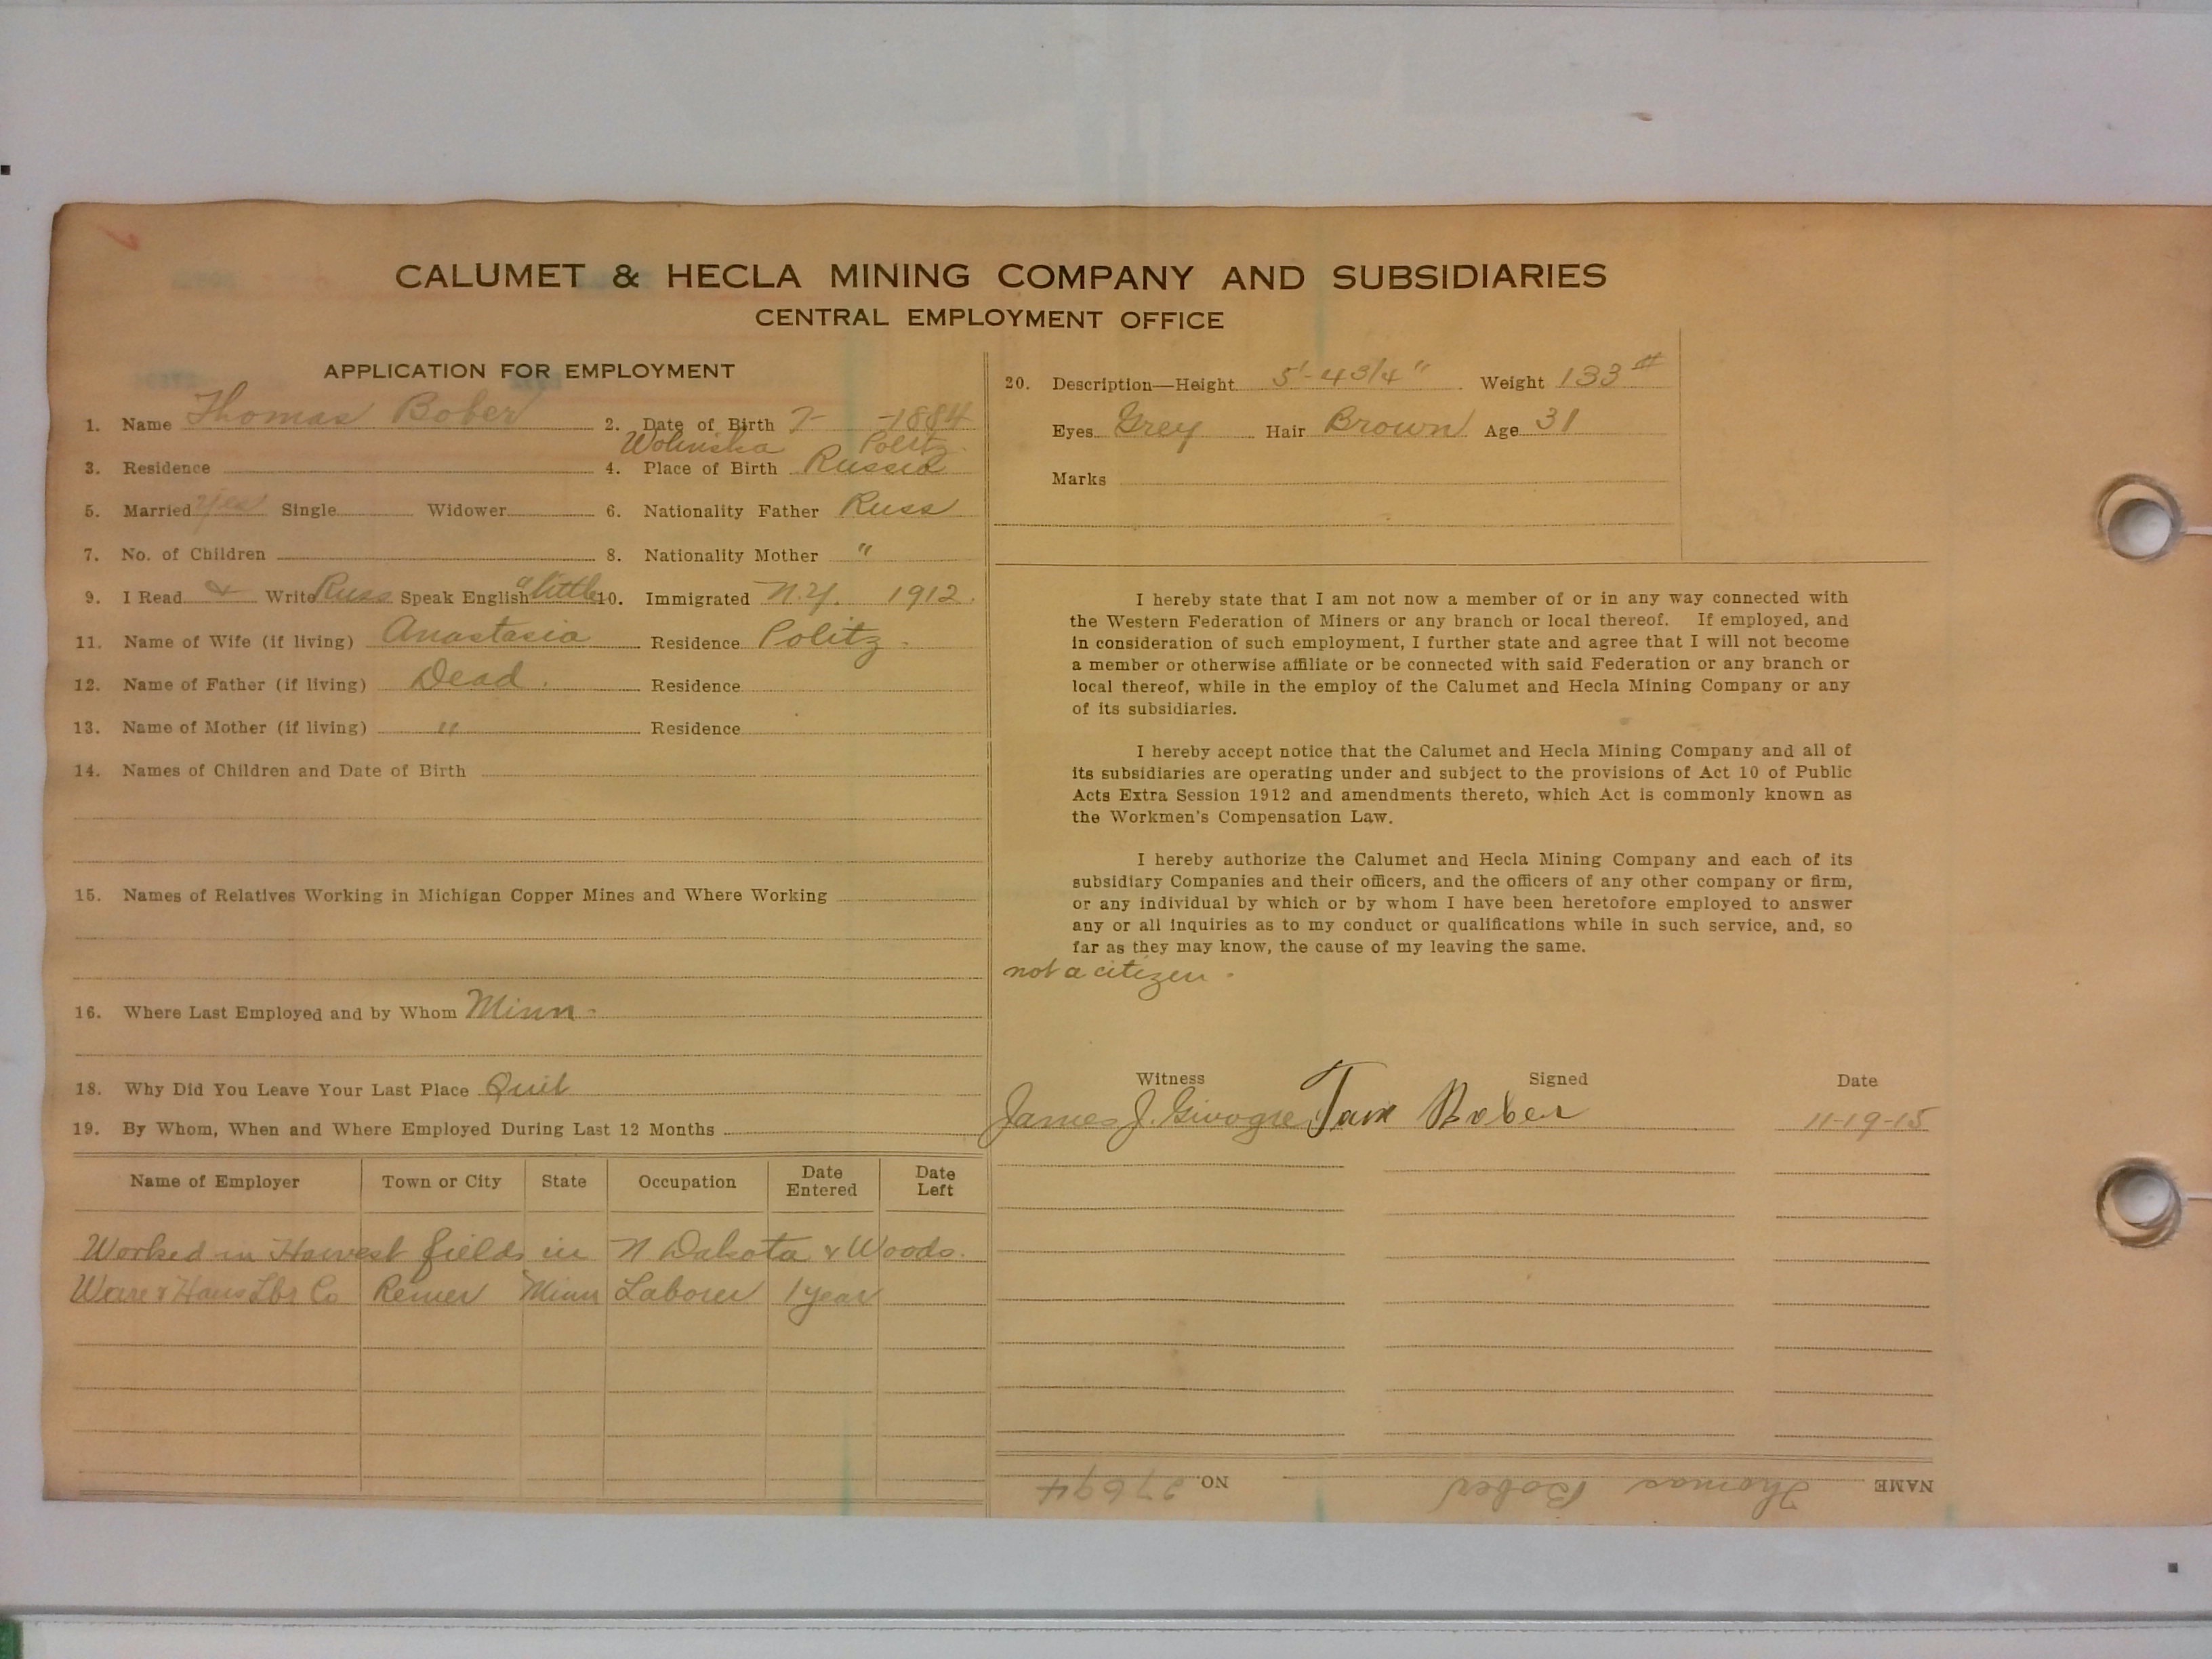 CALUMET & HECLA MINING COMPANY AND SUBSIDIARIES
CENTRAL EMPLOYMENT OFFICE
APPLICATION FOR EMPLOYMENT
1. Name Thomas Bober 2. Date of Birth 7- -1884
Wolinska Politz
3. Residence 4. Place of Birth Russia
5. Married yes Single Widower 6. Nationality Father Russ
7. No. of Children 8. Nationality Mother "
9. I Read & Write Russ Speak English a little 10. Immigrated N.Y. 1912.
11. Name of Wife (if living) Anastasia Residence Politz.
12. Name of Father (if living) Dead. Residence
13. Name of Mother (if living) " Residence
14. Names of Children and Date of Birth
15. Names of Relatives Working in Michigan Copper Mines and Where Working
16. Where Last Employed and by Whom Minn.
18. Why Did You Leave Your Last Place Quit
19. By Whom, When and Where Employed During Last 12 Months
Name of Employer Town or City State Occupation Date Entered Date Left
Worked in Harvest fields in N Dakota & Woods.
& Lbr Co Remer Minn Laborer 1 year
20. Description—Height 5'-4 3/4" Weight 133 #
Eyes Grey Hair Brown Age 31
Marks
I hereby state that I am not now a member of or in any way connected with
the Western Federation of Miners or any branch or local thereof. If employed, and
in consideration of such employment, I further state and agree that I will not become
a member or otherwise affiliate or be connected with said Federation or any branch or
local thereof, while in the employ of the Calumet and Hecla Mining Company or any
of its subsidiaries.
I hereby accept notice that the Calumet and Hecla Mining Company and all of
its subsidiaries are operating under and subject to the provisions of Act 10 of Public
Acts Extra Session 1912 and amendments thereto, which Act is commonly known as
the Workmen's Compensation Law.
I hereby authorize the Calumet and Hecla Mining Company and each of its
subsidiary Companies and their officers, and the officers of any other company or firm,
or any individual by which or by whom I have been heretofore employed to answer
any or all inquiries as to my conduct or qualifications while in such service, and, so
far as they may know, the cause of my leaving the same.
not a citizen.
Witness Signed Date
James J. Bober 11-19-15
NAME Thomas Bober NO. 27694